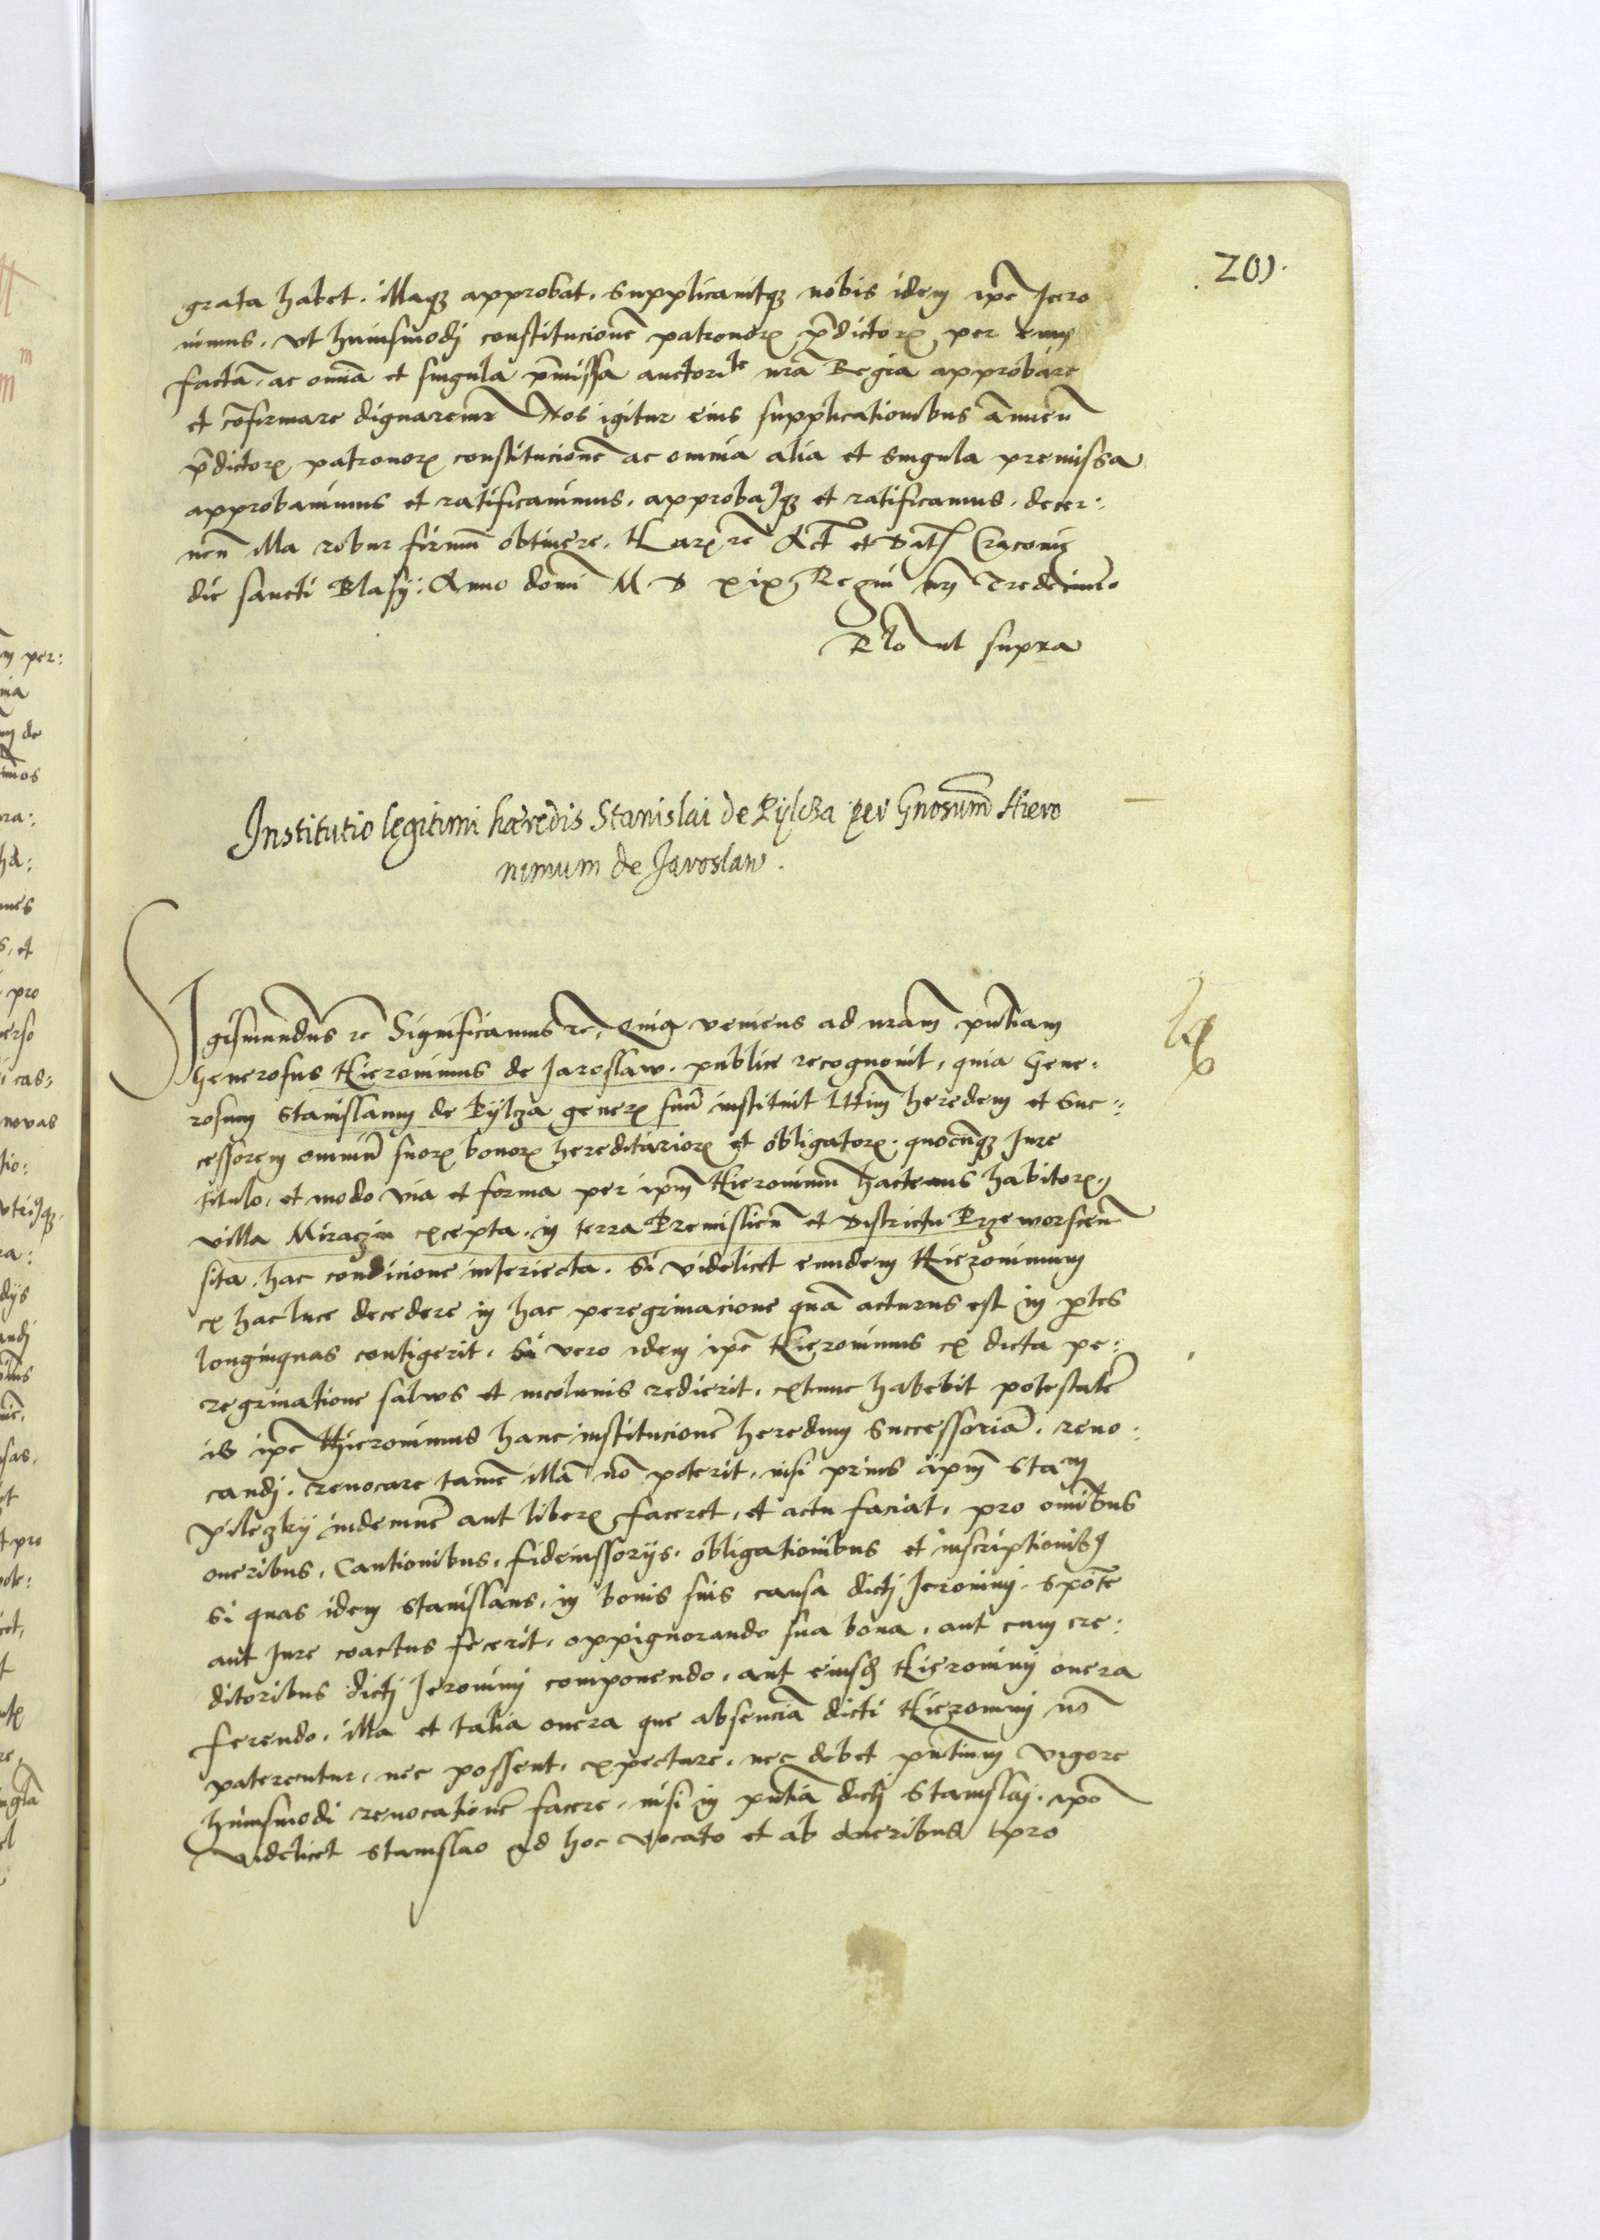 201.
grata habet. illaqꝫ approbat. Supplicauitqꝫ nobis idem ip̃e Jero
nimus. vt huiusmodj constitucionẽ patronorꝝ p̃dictorꝝ per eum
factã. ac om̃ia et singula p̃missa auctorite nr̃a Regia approbare
et cõfirmare dignaremur Nos igitur eius supplicationibus ãnuen̄
p̃dictorꝝ patronorꝝ constitucionẽ ac omnia alia et singula premissa
approbauimus et ratificauimus. approbaꝰqꝫ et ratificamus. decer:
nen̄ illa robur firmũ obtinere. Harꝝ rc Act̃ et Dat̃ Cracouię
die sancti Blasij: Anno domi M D xix Regni nr̃j Tredecimo
Rlo ut supra
Institutio legitimi hæredis Stanislai de Pijlcza per Gnosum̃ Hiero
nimum de Jaroslaw.
Sigismundus rc Significamus rc, Quia veniens ad nram̃ pñtiam
Generosus Hieronimus de Jaroslaw. publice recognouit, quia Gene:
rosum Stanislaum de Pylcza generꝝ suũ instituit ltt̃im heredem et Suc:
cessorem omniũ suorꝝ bonorꝝ hereditariorꝝ et obligatorꝝ. quocũqꝫ Jure
titulo. et modo via et forma per ip̃m Hieronimum hactenus habitorꝝ,
villa Miraczin excepta. in terra Premislien̄ et Districtu Przeworscen̄
sita. hac condicione interiecta. Si videlicet eundem Hieronimum
ex hac luce decedere in hac peregrinacione quã acturus est in ptes
longinquas contigerit. Si vero idem ip̃e Hieronimus ex dicta pe:
regrinatione saluus et incolumis redierit. extunc habebit potestatẽ
is ip̃e Hieronimus hanc institucionẽ heredum Successoriã. reuo:
candj. Reuocare tamẽ illã nõ poterit. nisi prius ip̃m Stam
Pileczkij indemnẽ aut liberꝝ faceret, et actu faciat. pro om̃ibus
oneribus. Cautionibus. fideiussorijs. obligationibus et inscriptionibꝰ
Si quas idem Stanislaus. in bonis suis causa dictj Jeronimj. sponte
aut Jure coactus fecerit. oppignorando sua bona. aut cum cre:
ditoribus dictj Jeronimj componendo. aut eiusdẽ Hieronimj onera
ferendo. illa et talia onera que absenciã dicti Hieronimj nõ
paterentur. nec possent. expectare. nec debet pñtium vigore
huiusmodi reuocationẽ facere. nisi in pñtia dictj Stanislaj. ip̃o
videlicet Stanislao ad hoc vocato et ab oneribus pro